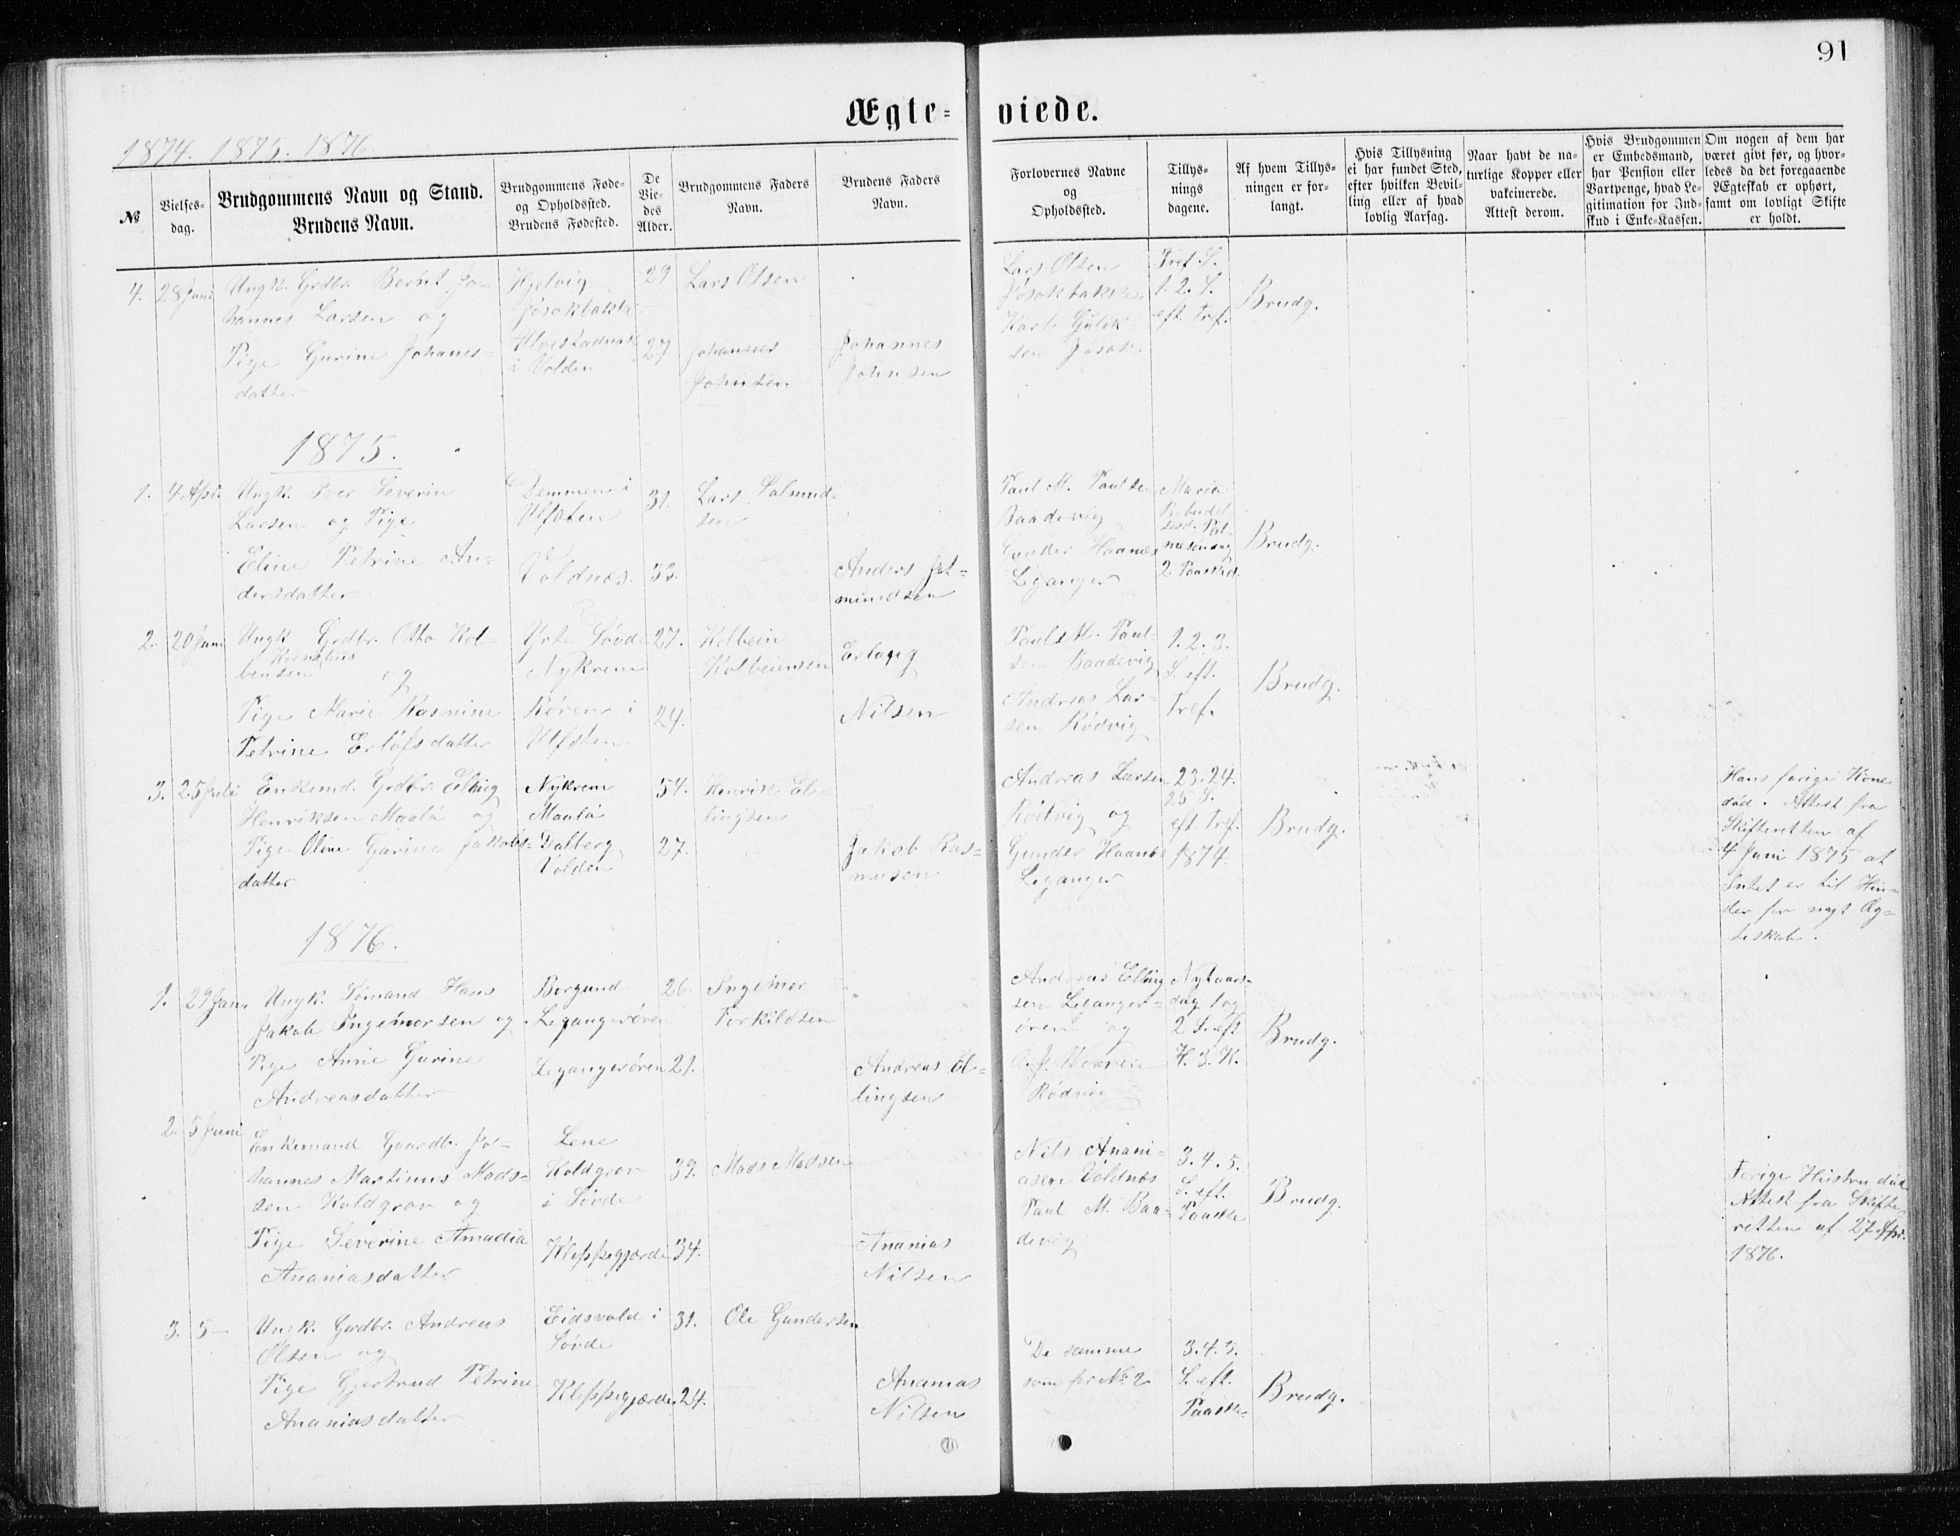 91
Ægte-
viede.
1874. 1875. 1876.
№
Vielses-
dag.
Brudgommens Navn og Stand.
Brudens Navn.
Brudgommens Føde-
og Opholdssted.
Brudens Fødested.
De
Vie-
des
Alder.
Brudgommens Faders
Navn.
Brudens Faders
Navn.
Forlovernes Navne
og
Opholdssted.
Tillys-
nings
dagene.
Af hvem Tillys-
ningen er for-
langt.
Hvis Tillysning
ei har fundet Sted,
efter hvilken Bevil-
ling eller af hvad
lovlig Aarsag.
Naar havt de na-
turlige Kopper eller
vakcinerede.
Attest derom.
Hvis Brudgommen
er Embedsmand,
har Pension eller
Vartpenge, hvad Le-
gitimation for Ind-
skud i Enke-Kassen.
Om nogen af dem har
været givt før, og hvor-
ledes da det foregaaende
Ægteskab er ophørt,
samt om lovligt Skifte
er holdt.
4. 28 Juni
Ungk. Grdbr. Bernt Jo-
hannes Larsen og
Pige Gurine Johanes-
datter
Hjelvig
Jøsokbakke
i Volden
29
27
Lars Olsen
Johannes
Johnsen
Johannes
Johnsen
Lars Olsen
Jøsokbakke
Karl Gulik-
sen Jøsok
Tref. S.
1. 2. S.
eft. Tref.
Brudg.
1875.
1. 4 Apr.
Ungk. Iver Severin
Larsen og Pige
Eline Petrine An-
dersdatter
Demmen i
Ulfsten
Voldnæs.
31.
32.
Lars Salmund-
sen
Anders Jet-
mundsen
Paul M. Paulsen
Baadevig
Gunder Haanæs
Leganger
Maria
Bebudel
sesd. Pal-
mesøndag
2 Paaskd.
Brudg.
2. 20 Juni
Ungk Grdbr. Otto Kol-
Kornelius
bensen og
Pige Marie Rasmine
Petrine Erlofsdatter
Yrte Søvde
Nykrem
Røren i
Ulfsten
27.
24.
Kolbein
Kolbeinsen
Erlaug
Nilsen
Paul M. Paul-
sen Baadevig
Andreas Lar-
sen Rødvig
1. 2. 3.
S. eft.
Tref.
Brudg.
3. 25 Juli
Enkemd. Grdbr. Elling
Henriksen Maalø og
Pige Oline Gurine Jakobs-
datter
Nykrem
Maalø
Dalberg
Volden
54.
27.
Henrik El-
lingsen
Jakob Ras-
musen
Andreas Larsen
Rødvig og
Gunder Haanæs
Leganger
23. 24.
25 S.
eft. Tref.
1874.
Brudg.
Hans forige Kone
død. Attest fra
Skifteretten af
4 Juni 1875 at
Intet er til Hin-
der for nyt Æg-
teskab.
1876.
1. 29 Jan.
Ungk. Sømand Hans
Jakob Ingemorsen og
Pige Anne Gurine
Andreasdatter
Borgund
Legangerøren
Legangerøren
26.
21.
Ingemor
Torkildsen
Andreas El-
lingsen
Andreas Elling
sen Leganger-
øren og
Rødvig
Nytaars-
dag 1 og
2 S. eft
H. 3. K.
Brudg.
2. 5 Juni
Enkemand Gaardbr. Jo-
hannes Martinus Mads-
sen Koldgrov og
Pige Severine Amadia
Ananiasdatter
Lene
Koldgrov
i Søvde
Kleppegjærde
39.
34.
Mads Madsen
Ananias
Nilsen
Nils Anani-
asen Voldnæs
Paul M. Baa-
devig
3. 4. 5.
S. eft.
Paaske
Brudg.
Forige Hustru død
Attest fra Skifte
retten af 27 Apr.
1876.
3. 5 —
Ungk. Gardbr. Andreas
Olsen og
Pige Gjertrud Petrine
Ananiasdatter
Eidsvold i
Søvde
Kleppegjærde
31.
24.
Ole Gundersen
Ananias
Nilsen
De samme
som for № 2
3. 4. 5.
S. eft.
Paaske.
Brudg.